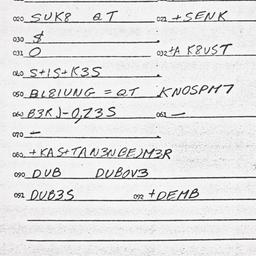 020 SUK8 QT 021 +SENK
030 $
031 O 032 +A K8UST
040 S+IS+K3S
050 BL8IUNG = QT KNOSPM7
060 B3R)-0,Z3S 061 —
070 —
080 +KAS+TAN3NBE)M3R
090 DUB DUBOV3
091 DUB3S 092 +DEMB